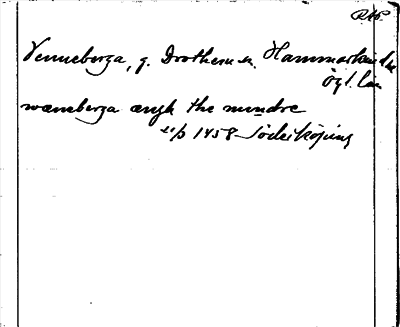 Venneberga, g. Drothems sn. Hammarkinds hd
Ögl. län
wæneberga ængh the mindre
u/p 1458 Söderköping